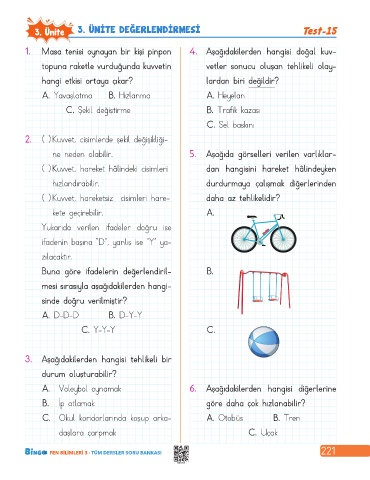 3. Ünite
3. ÜNİTE DEĞERLENDİRMESİ
Test-15
1. Masa tenisi oynayan bir kişi pinpon
topuna raketle vurduğunda kuvvetin
hangi etkisi ortaya çıkar?
A. Yavaşlatma B. Hızlanma
C. Şekil değiştirme
2. ( ) Kuvvet, cisimlerde şekil değişikliği-
ne neden olabilir.
( ) Kuvvet, hareket hâlindeki cisimleri
hızlandırabilir.
( ) Kuvvet, hareketsiz cisimleri hare-
kete geçirebilir.
Yukarıda verilen ifadeler doğru ise
ifadenin başına "D", yanlış ise "Y" ya-
zılacaktır.
Buna göre ifadelerin değerlendiril-
mesi sırasıyla aşağıdakilerden hangi-
sinde doğru verilmiştir?
A. D-D-D B. D-Y-Y
C. Y-Y-Y
3. Aşağıdakilerden hangisi tehlikeli bir
durum oluşturabilir?
A. Voleybol oynamak
B. İp atlamak
C. Okul koridorlarında koşup arka-
daşlara çarpmak
4. Aşağıdakilerden hangisi doğal kuv-
vetler sonucu oluşan tehlikeli olay-
lardan biri değildir?
A. Heyelan
B. Trafik kazası
C. Sel baskını
5. Aşağıda görselleri verilen varlıklar-
dan hangisini hareket hâlindeyken
durdurmaya çalışmak diğerlerinden
daha az tehlikelidir?
A.
B.
C.
6. Aşağıdakilerden hangisi diğerlerine
göre daha çok hızlanabilir?
A. Otobüs B. Tren
C. Uçak
BİNGO FEN BİLİMLERİ 3 - TÜM DERSLER SORU BANKASI
221